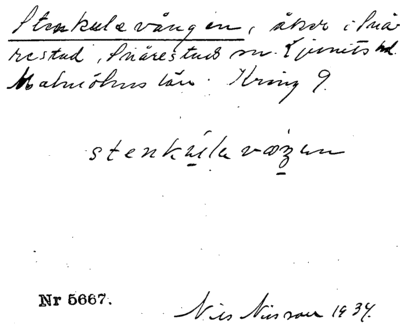 Stenkulavången, åker i Snä-
restad, Snårestad sn. Ljunits hd.
Malmöhus län. Kring 9.
stenkula våŋen
Nr 5667.
Nils Nilsson 1934.